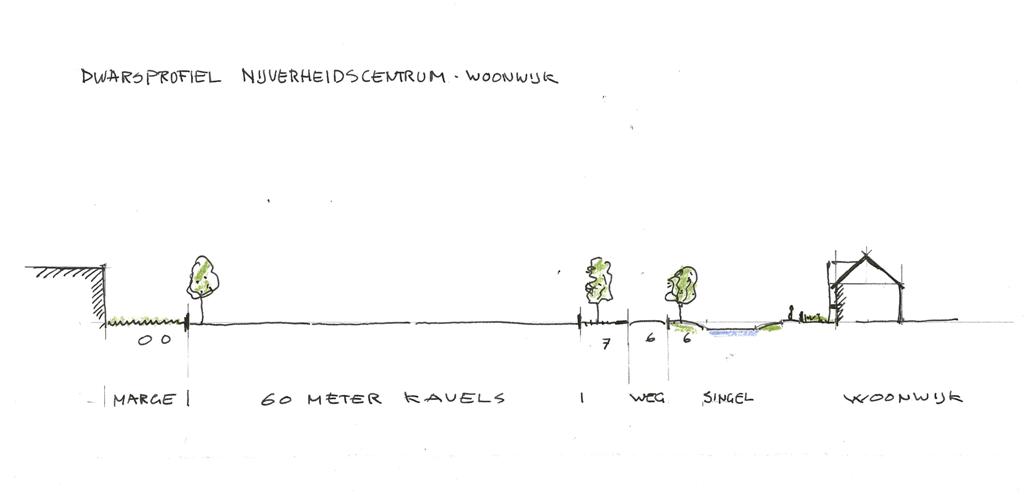 DWARSPROFIEL NIJVERHEIDSCENTRUM - WOONWIJK
00 7 6 6
MARGE 60 METER KAVELS WEG SINGEL WOONWIJK